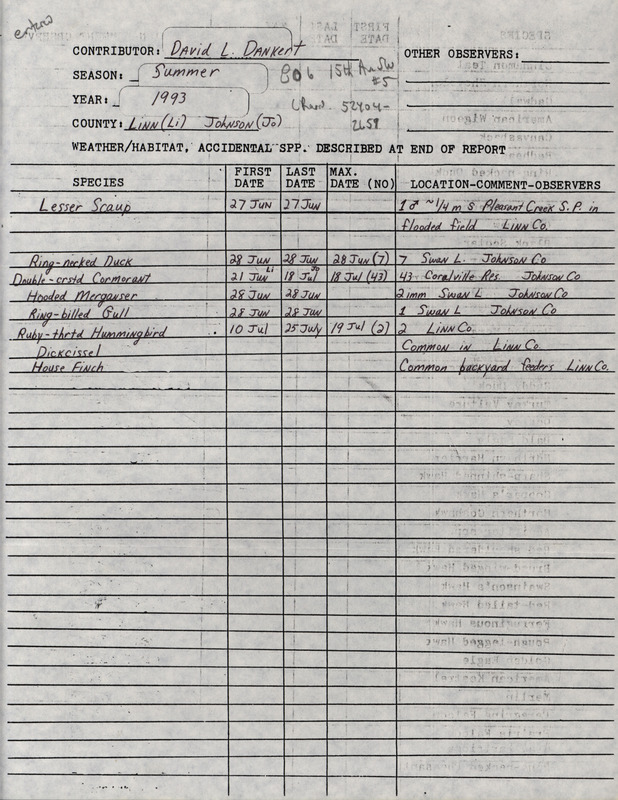 entered
CONTRIBUTOR: David L. Dankert
OTHER OBSERVERS:
SEASON: Summer
806 15th Av SW
#5
YEAR: 1993
52404-
2659
COUNTY: Linn (Li) Johnson (Jo)
WEATHER/HABITAT, ACCIDENTAL SPP. DESCRIBED AT END OF REPORT
SPECIES FIRST DATE LAST DATE MAX. DATE (NO) LOCATION-COMMENT-OBSERVERS
Lesser Scaup 27 Jun 27 Jun 1♂ ~1/4 m S Pleasant Creek S.P. in
flooded field Linn Co.
Ring-necked Duck 28 Jun 28 Jun 28 Jun (7) 7 Swan L. Johnson Co
Double-crstd Cormorant 21 Jun Li 18 Jul Jo 18 Jul (43) 43 Coralville Res. Johnson Co
Hooded Merganser 28 Jun 28 Jun 2 imm Swan L Johnson Co
Ring-billed Gull 28 Jun 28 Jun 1 Swan L Johnson Co
Ruby-thrtd Hummingbird 10 Jul 25 July 19 Jul (2) 2 Linn Co.
Dickcissel Common in Linn Co.
House Finch Common backyard feeders Linn Co.